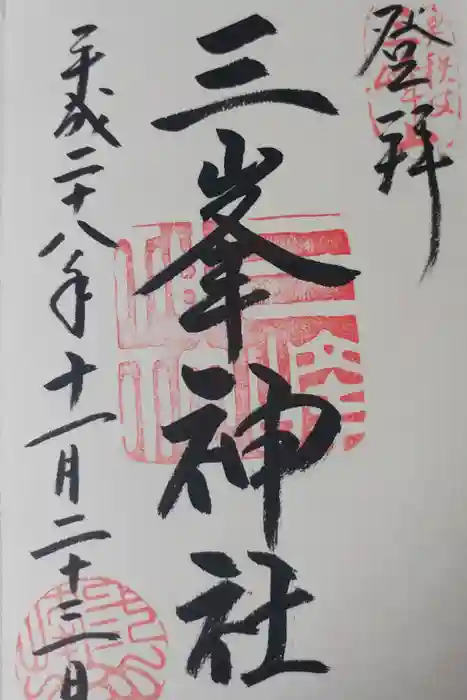 登拝
三峯神社
平成二十八年十一月二十三日